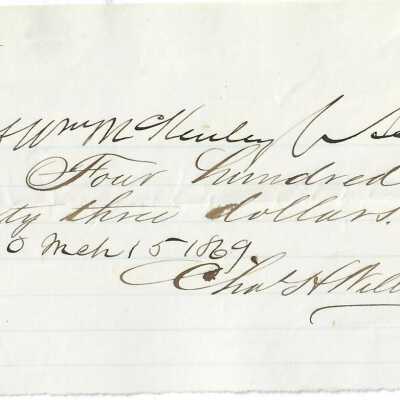 Wm McKinley
Four hundred
ty three dollars.
0 Mch 15 1869
Chas H Will